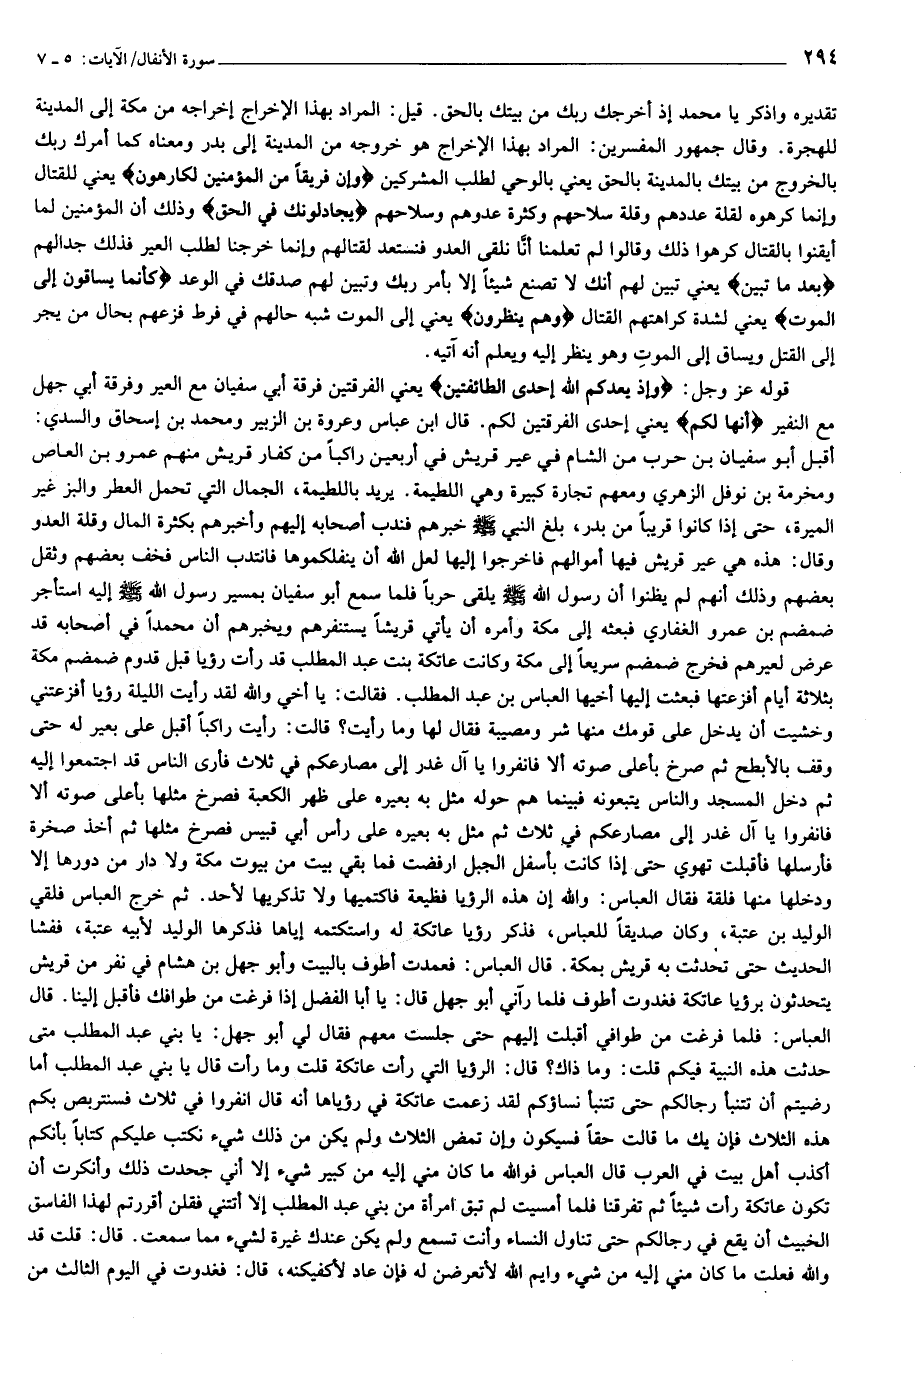 ٢٩٤ سورة الأنفال/ الآيات: ٥ ـ ٧
تقديره واذكر يا محمد إذ أخرجك ربك من بيتك بالحق. قيل: المراد بهذا الإخراج إخراجه من مكة إلى المدينة
للهجرة. وقال جمهور المفسرين: المراد بهذا الإخراج هو خروجه من المدينة إلى بدر ومعناه كما أمرك ربك
بالخروج من بيتك بالمدينة بالحق يعني بالوحي لطلب المشركين ﴿وإن فريقاً من المؤمنين لكارهون﴾ يعني للقتال
وإنما كرهوه لقلة عددهم وقلة سلاحهم وكثرة عدوهم وسلاحهم ﴿يجادلونك في الحق﴾ وذلك أن المؤمنين لما
أيقنوا بالقتال كرهوا ذلك وقالوا لم تعلمنا أنَّا نلقى العدو فنستعد لقتالهم وإنما خرجنا لطلب العير فذلك جدالهم
﴿بعد ما تبين﴾ يعني تبين لهم أنك لا تصنع شيئاً إلا بأمر ربك وتبين لهم صدقك في الوعد ﴿كأنما يساقون إلى
الموت﴾ يعني لشدة كراهتهم القتال ﴿وهم ينظرون﴾ يعني إلى الموت شبه حالهم في فرط فزعهم بحال من يجر
إلى القتل ويساق إلى الموت وهو ينظر إليه ويعلم أنه آتيه.
قوله عز وجل: ﴿وإذ يعدكم الله إحدى الطائفتين﴾ يعني الفرقتين فرقة أبي سفيان مع العير وفرقة أبي جهل
مع النفير ﴿أنها لكم﴾ يعني إحدى الفرقتين لكم. قال ابن عباس وعروة بن الزبير ومحمد بن إسحاق والسدي:
أقبل أبو سفيان بن حرب من الشام في عير قريش في أربعين راكباً من كفار قريش منهم عمرو بن العاص
ومخرمة بن نوفل الزهري ومعهم تجارة كبيرة وهي اللطيمة. يريد باللطيمة، الجمال التي تحمل العطر والبز غير
الميرة، حتى إذا كانوا قريباً من بدر، بلغ النبي ﷺ خبرهم فندب أصحابه إليهم وأخبرهم بكثرة المال وقلة العدو
وقال: هذه هي عير قريش فيها أموالهم فاخرجوا إليها لعل الله أن ينفلكموها فانتدب الناس فخف بعضهم وثقل
بعضهم وذلك أنهم لم يظنوا أن رسول الله ﷺ يلقى حرباً فلما سمع أبو سفيان بمسير رسول الله ﷺ إليه استأجر
ضمضم بن عمرو الغفاري فبعثه إلى مكة وأمره أن يأتي قريشاً يستنفرهم ويخبرهم أن محمداً في أصحابه قد
عرض لعيرهم فخرج ضمضم سريعاً إلى مكة وكانت عاتكة بنت عبد المطلب قد رأت رؤيا قبل قدوم ضمضم مكة
بثلاثة أيام أفزعتها فبعثت إليها أخيها العباس بن عبد المطلب. فقالت: يا أخي والله لقد رأيت الليلة رؤيا أفزعتني
وخشيت أن يدخل على قومك منها شر ومصيبة فقال لها وما رأيت؟ قالت: رأيت راكباً أقبل على بعير له حتى
وقف بالأبطح ثم صرخ بأعلى صوته ألا فانفروا يا آل غدر إلى مصارعكم في ثلاث فأرى الناس قد اجتمعوا إليه
ثم دخل المسجد والناس يتبعونه فبينما هم حوله مثل به بعيره على ظهر الكعبة فصرخ مثلها بأعلى صوته ألا
فانفروا يا آل غدر إلى مصارعكم في ثلاث ثم مثل به بعيره على رأس أبي قبيس فصرخ مثلها ثم أخذ صخرة
فأرسلها فأقبلت تهوي حتى إذا كانت بأسفل الجبل ارفضت فما بقي بيت من بيوت مكة ولا دار من دورها إلا
ودخلها منها فلقة فقال العباس: والله إن هذه الرؤيا فظيعة فاكتميها ولا تذكريها لأحد. ثم خرج العباس فلقي
الوليد بن عتبة، وكان صديقاً للعباس، فذكر رؤيا عاتكة له واستكتمه إياها فذكرها الوليد لأبيه عتبة، ففشا
الحديث حتى تحدثت به قريش بمكة. قال العباس: فعمدت أطوف بالبيت وأبو جهل بن هشام في نفر من قريش
يتحدثون برؤيا عاتكة فغدوت أطوف فلما رآني أبو جهل قال: يا أبا الفضل إذا فرغت من طوافك فأقبل إلينا. قال
العباس: فلما فرغت من طوافي أقبلت إليهم حتى جلست معهم فقال لي أبو جهل: يا بني عبد المطلب متى
حدثت هذه النبية فيكم قلت: وما ذاك؟ قال: الرؤيا التي رأت عاتكة قلت وما رأت قال يا بني عبد المطلب أما
رضيتم أن تتنبأ رجالكم حتى تتنبأ نساؤكم لقد زعمت عاتكة في رؤياها أنه قال انفروا في ثلاث فسنتربص بكم
هذه الثلاث فإن يك ما قالت حقاً فسيكون وإن تمض الثلاث ولم يكن من ذلك شيء نكتب عليكم كتاباً بأنكم
أكذب أهل بيت في العرب قال العباس فوالله ما كان مني إليه من كبير شيء إلا أني جحدت ذلك وأنكرت أن
تكون عاتكة رأت شيئاً ثم تفرقنا فلما أمسيت لم تبق امرأة من بني عبد المطلب إلا أتتني فقلن أقررتم لهذا الفاسق
الخبيث أن يقع في رجالكم حتى تناول النساء وأنت تسمع ولم يكن عندك غيرة لشيء مما سمعت. قال: قلت قد
والله فعلت ما كان مني إليه من شيء وايم الله لأتعرضن له فإن عاد لأكفيكنه، قال: فغدوت في اليوم الثالث من